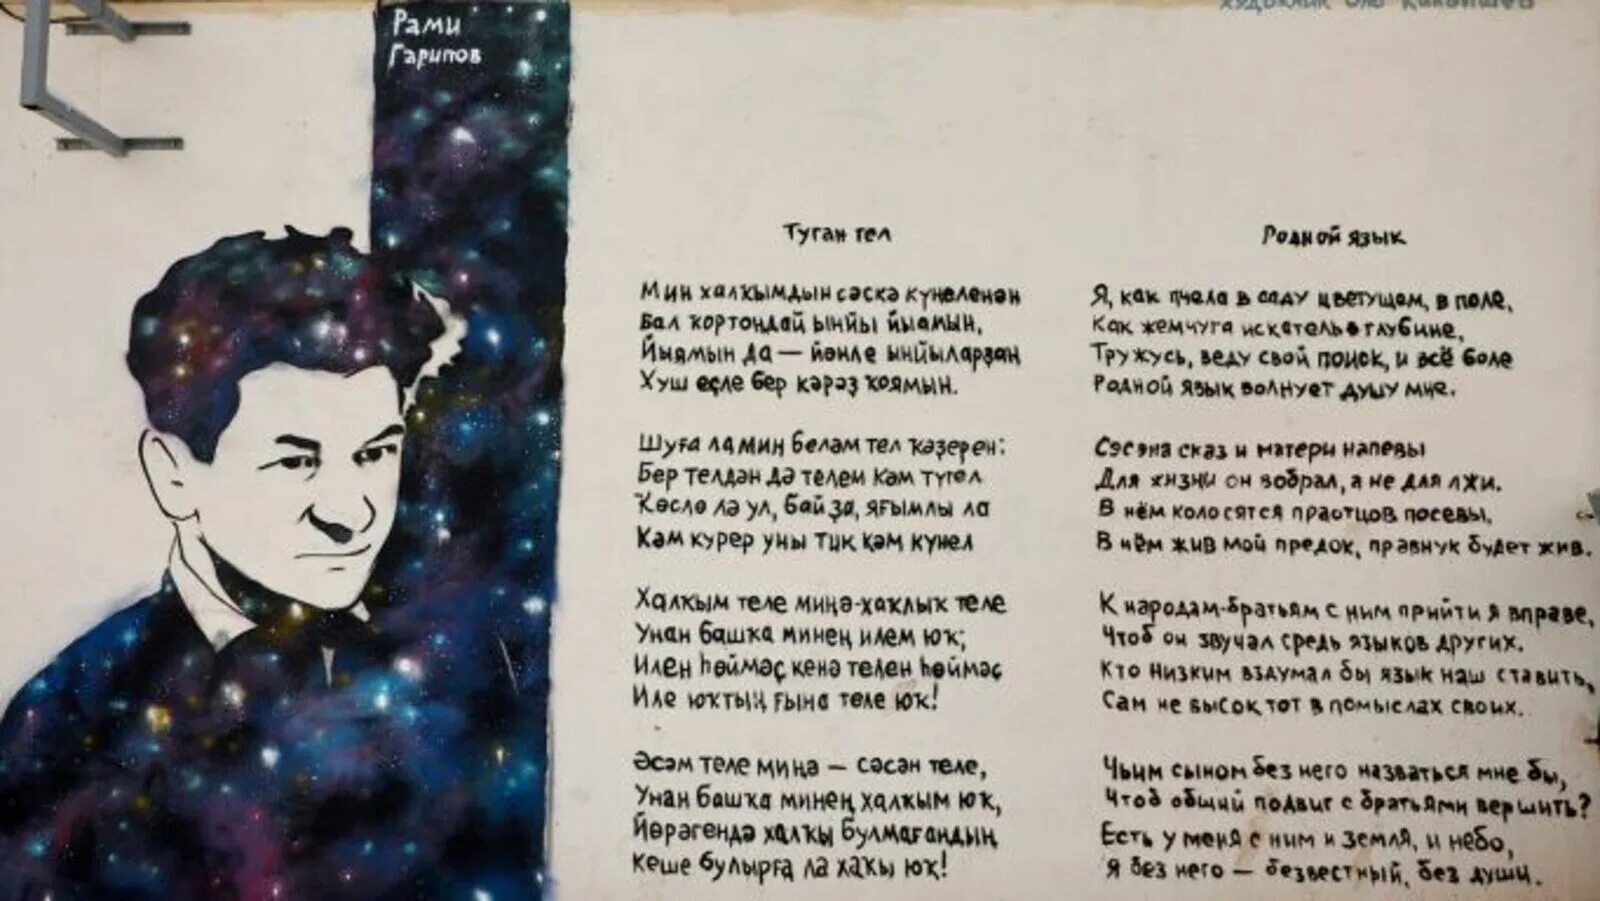 Рами
Гарипов
художник
Туган тел
Мин халҡымдың сәскә күңеленән
Бал ҡортондай ынйы йыямын,
Йыямын да — йәнле ынйыларҙан
Хуш еҫле бер кәрәҙ ҡоямын.
Шуға ла мин беләм тел ҡәҙерен:
Бер телдән дә телем кәм түгел
Көслө лә ул, бай ҙа, яғымлы ла
Кәм күрер уны тик кәм күңел
Халҡым теле миңә-хаҡлыҡ теле
Унан башҡа минең илем юҡ;
Илен һөймәҫ кенә телен һөймәҫ
Иле юҡтың ғына теле юҡ!
Әсәм теле миңә — сәсән теле,
Унан башҡа минең халҡым юҡ,
Йөрәгендә халҡы булмағандың
Кеше булырға ла хаҡы юҡ!
Родной язык
Я, как пчела в саду цветущем, в поле,
Как жемчуга искатель в глубине,
Тружусь, веду свой поиск, и всё боле
Родной язык волнует душу мне.
Сэсэна сказ и матери напевы
Для жизни он вобрал, а не для лжи.
В нём колосятся праотцов посевы,
В нём жив мой предок, правнук будет жив.
К народам-братьям с ним прийти я вправе,
Чтоб он звучал средь языков других.
Кто низким вздумал бы язык наш ставить,
Сам не высок тот в помыслах своих.
Чьим сыном без него назваться мне бы,
Чтоб общий подвиг с братьями вершить?
Есть у меня с ним и земля, и небо,
Я без него — безвестный, без души.